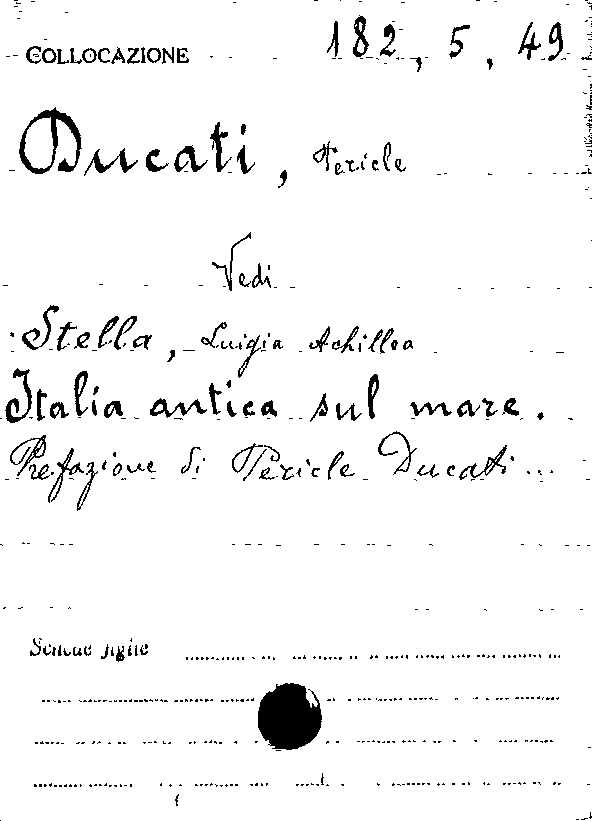 COLLOCAZIONE 182, 5, 49
Ducati, Pericle
Vedi
Stella, Luigia Achillea
Italia antica sul mare.
Prefazione di Pericle Ducati...
Schede figlie